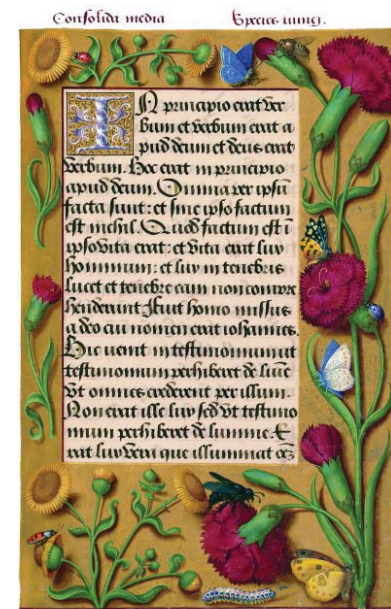 Consolida media
Species tunicj.
IN principio erat ver
bum et verbum erat a
pud deum et deus erat
verbum. Hoc erat in principio
apud deum. Omnia per ipsum
facta sunt: et sine ipso factum
est nichil. Quod factum est ī
ipso vita erat: et vita erat lux
hominum: et lux in tenebris
lucet et tenebre eam non compre
henderunt Fuit homo missus
a deo cui nomen erat iohannes.
Hic venit in testimonium ut
testimonium perhiberet de lumīe
Vt omnes crederent per illum.
Non erat ille lux sed vt testimo
nium perhiberet de lumine. E
rat lux vera que illuminat oēz